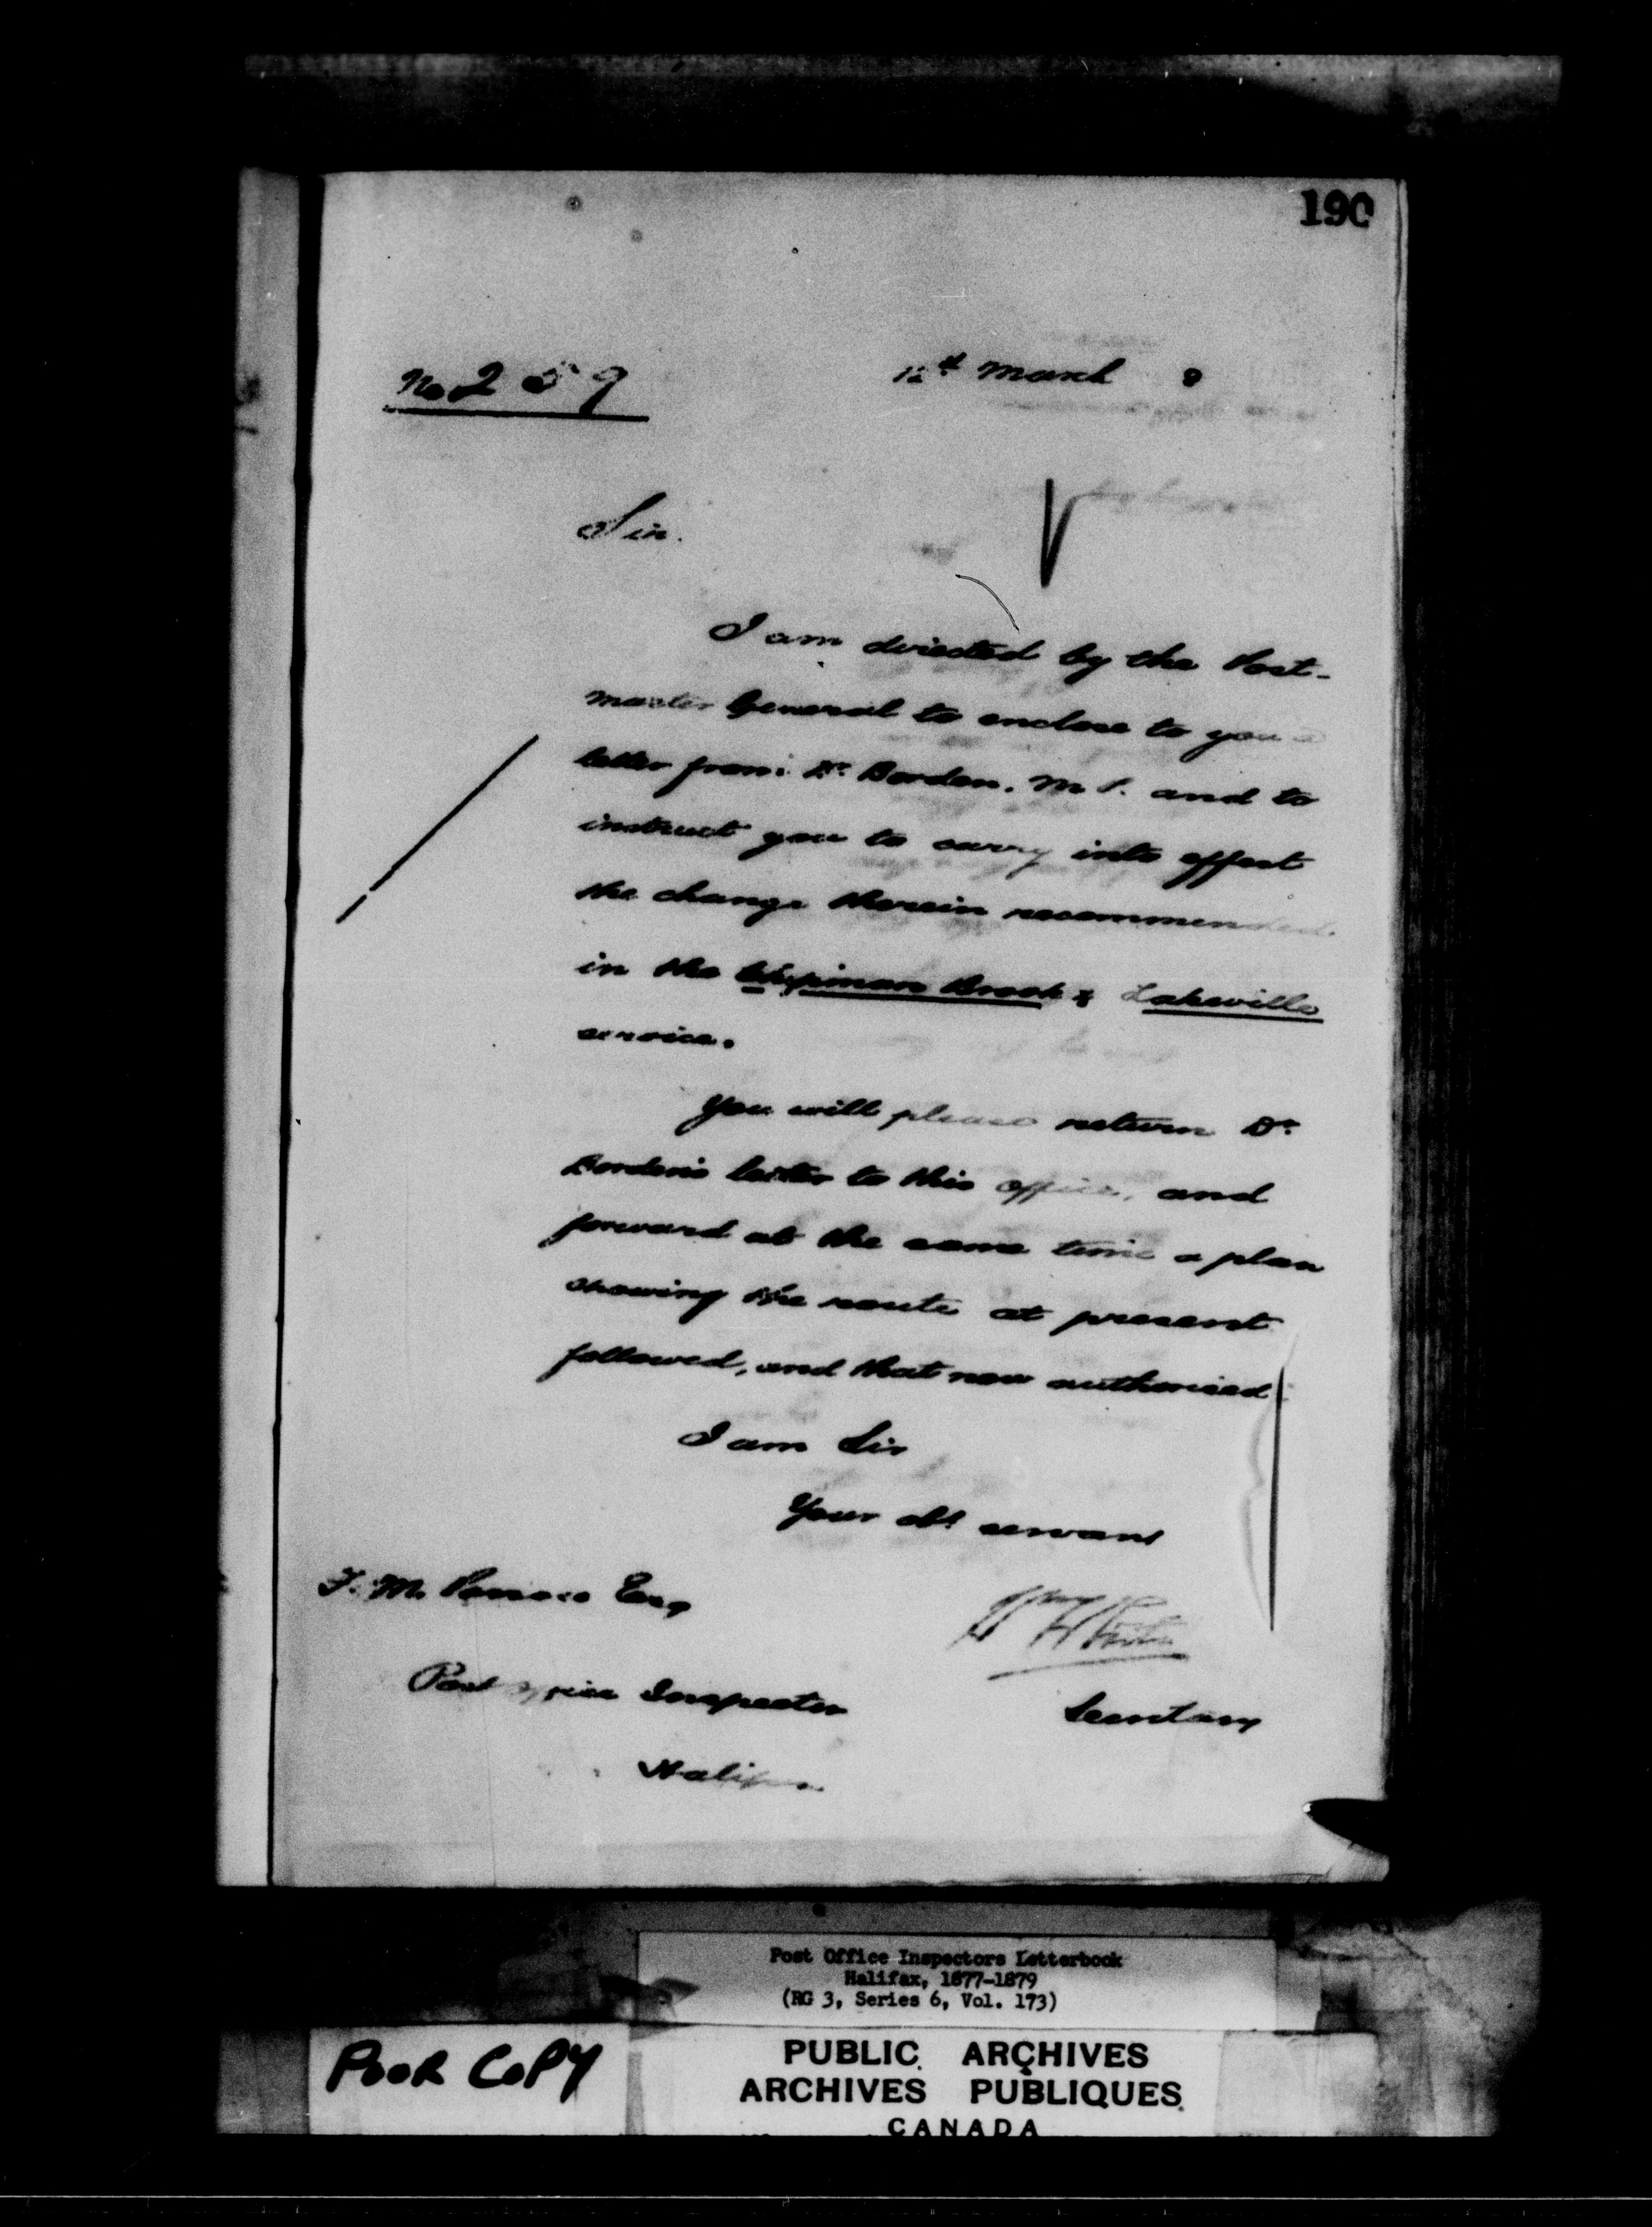 190
No 259
12th March 8
Sir.
I am directed by the Post-
master General to enclose to you a
letter from Dr. Borden. M.P. and to
instruct you to carry into effect
the change therein recommended
in the Chipman Brook & Lakeville
service.
You will please return Dr.
Borden's letter to this office, and
forward at the same time a plan
showing the route at present
followed, and that now authorised.
I am Sir
Your obt servant
F. M. Passow Esq
Secretary
Post Office Inspector
Halifax
Post Office Inspectors Letterbook
Halifax, 1877-1879
(RG 3, Series 6, Vol. 173)
POOR COPY
PUBLIC ARCHIVES
ARCHIVES PUBLIQUES
CANADA